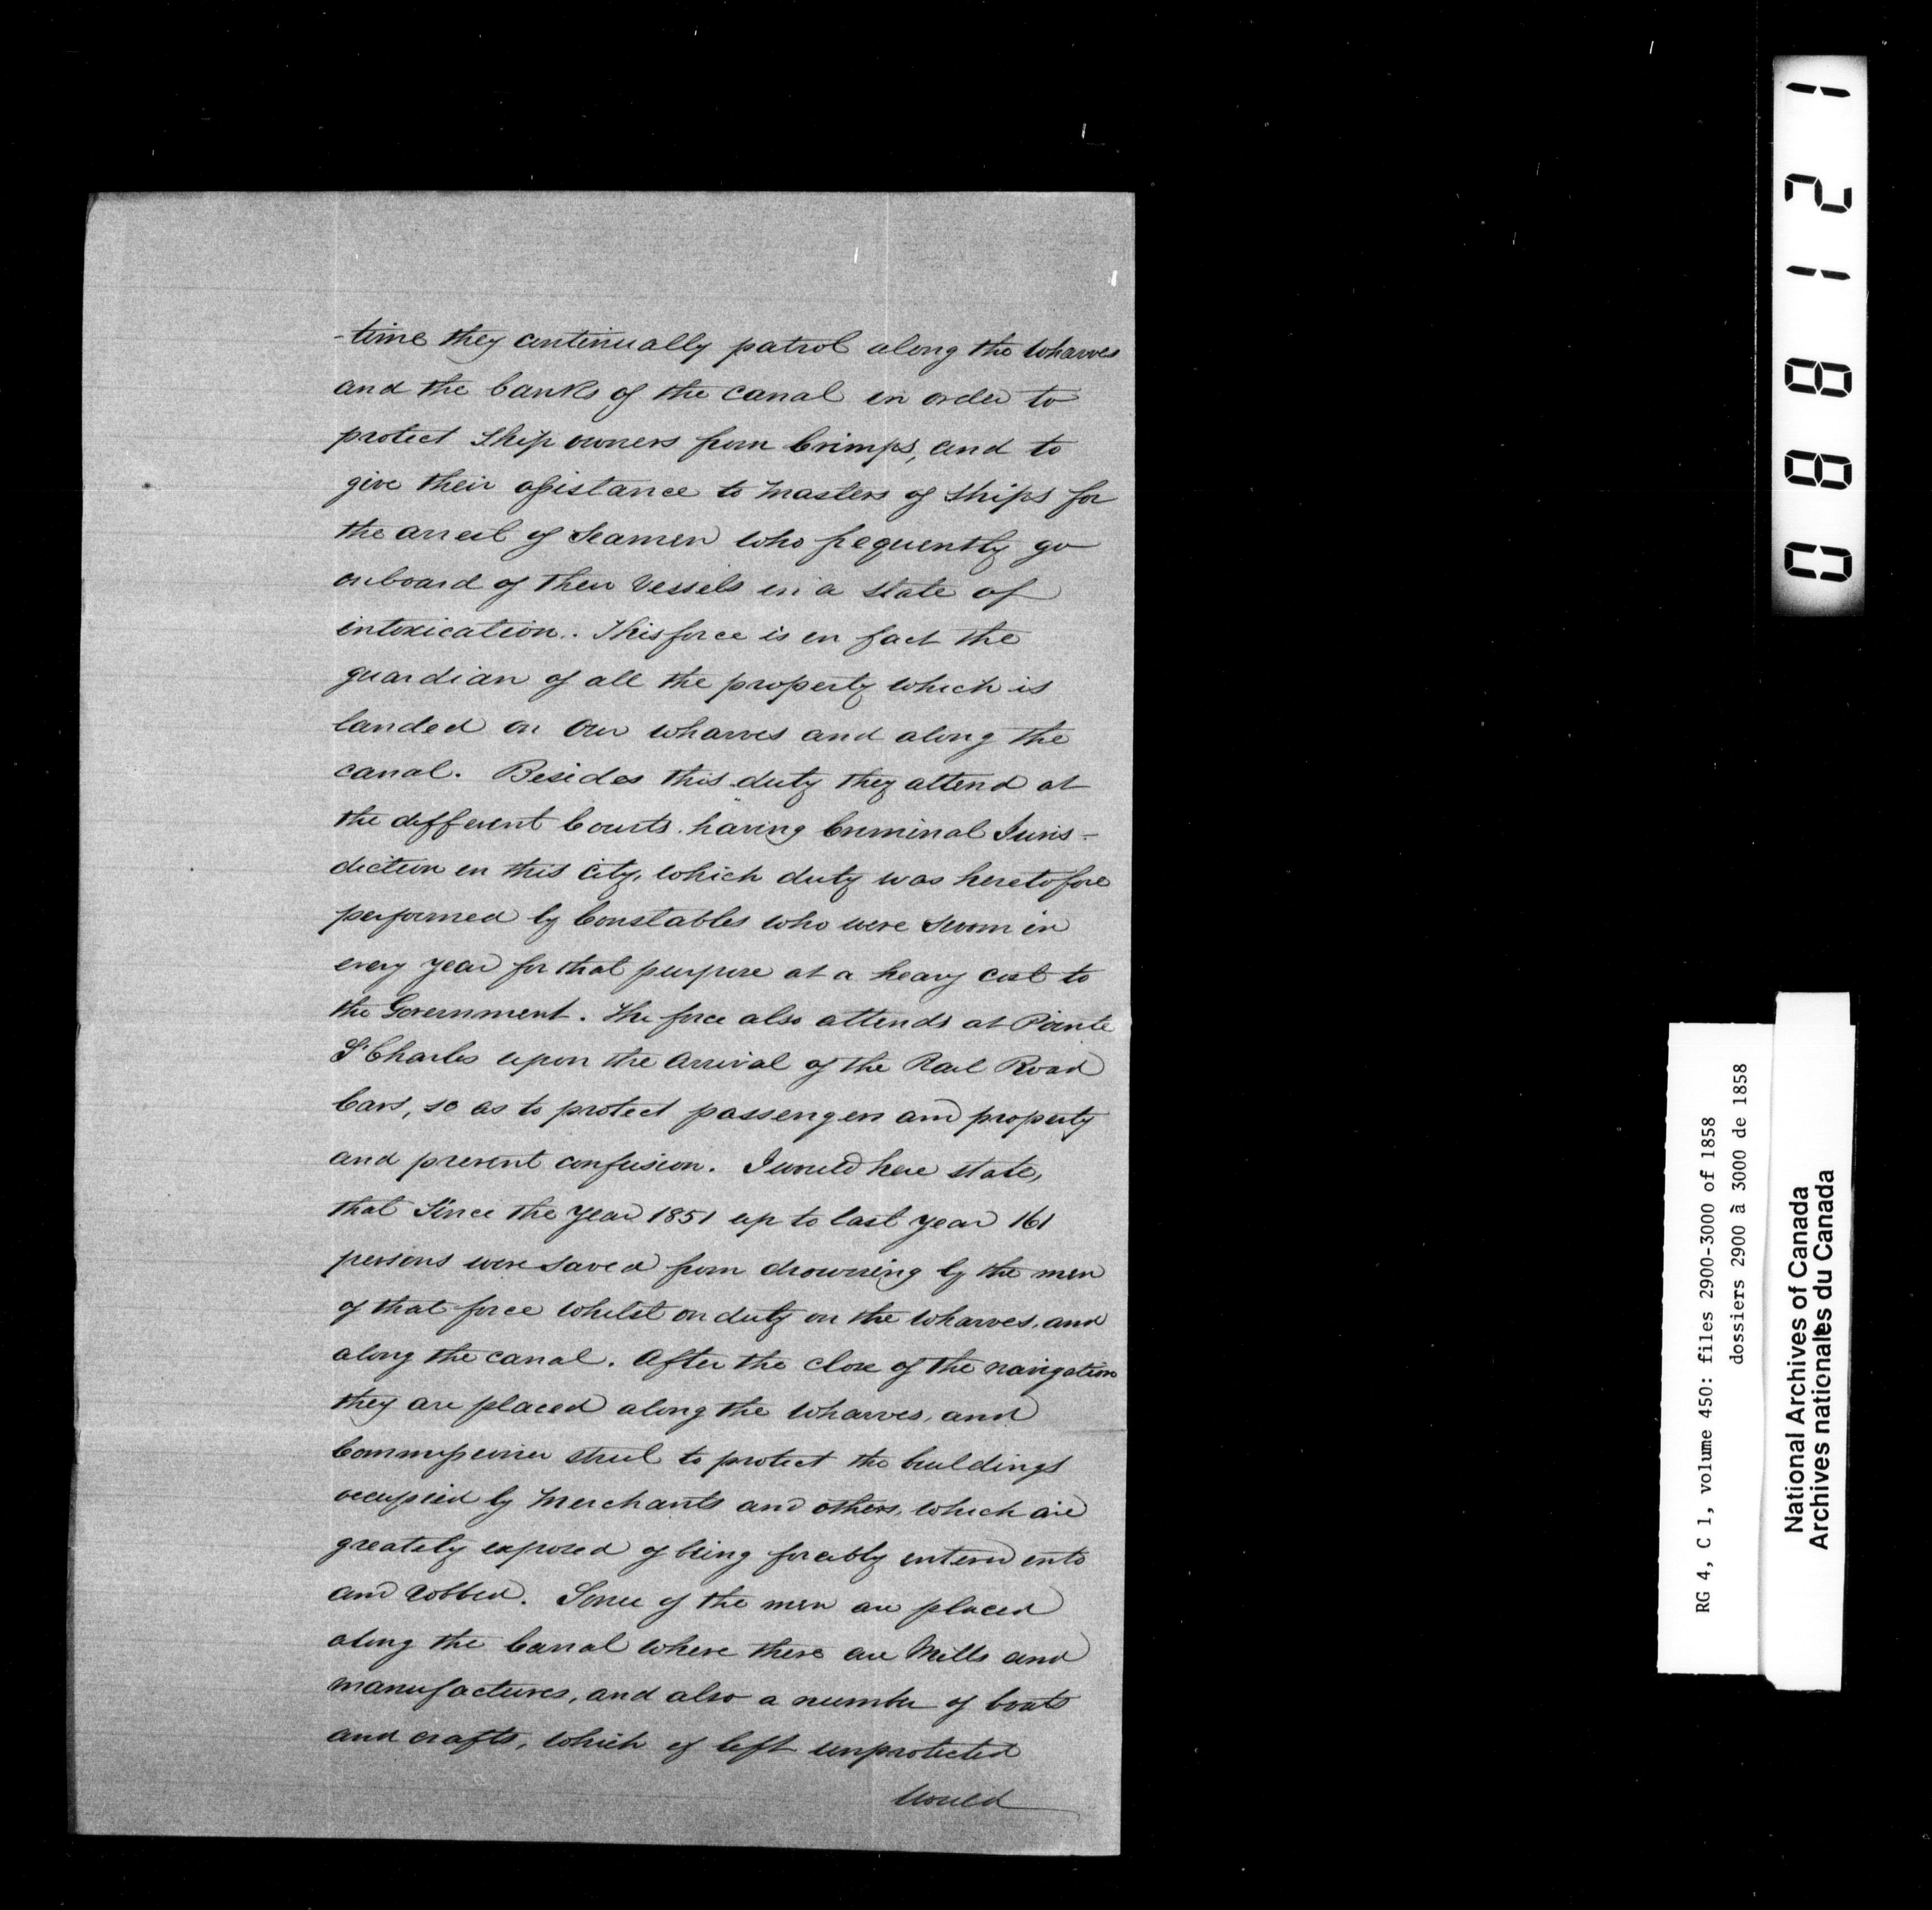 -time they continually patrol along the wharves
and the banks of the canal in order to
protect Ship owners from Crimps, and to
give their assistance to Masters of Ships for
the arrest of Seamen who frequently go
onboard of their Vessels in a state of
intoxication. This force is in fact the
guardian of all the property which is
landed on our wharves and along the
canal. Besides this duty they attend at
the different Courts having Criminal Juris-
diction in this City, which duty was heretofore
performed by Constables who were sworn in
every year for that purpose at a heavy cost to
the Government. The force also attends at Pointe
St Charles upon the arrival of the Rail Road
Cars, so as to protect passengers and property
and prevent confusion. I would here state,
that Since the year 1851 up to last year 161
persons were saved from drowning by the men
of that force whilst on duty on the wharves, and
along the canal. After the close of the navigation
they are placed along the wharves, and
Commissioner street to protect the buildings
occupied by Merchants and others, which are
greately exposed of being forcibly entered into
and robbed. Some of the men are placed
along the Canal where there are Mills and
manufactures, and also a number of boats
and crafts, which if left unprotected
would
088121
RG 4, C 1, volume 450: files 2900-3000 of 1858
dossiers 2900 à 3000 de 1858
National Archives of Canada
Archives nationales du Canada